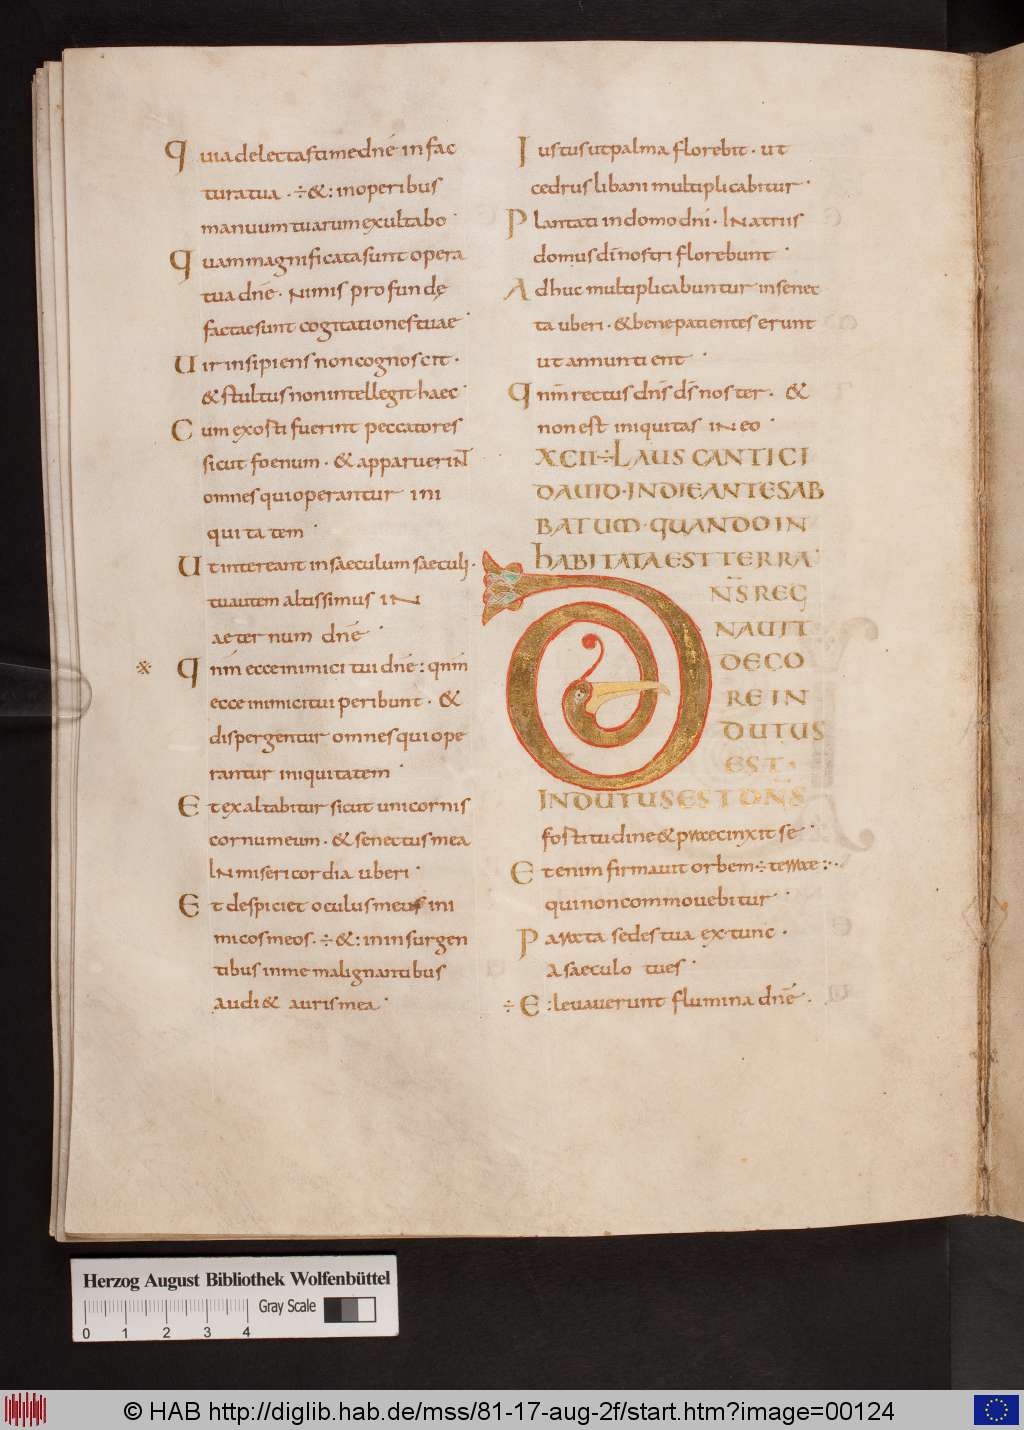 Quia delectasti me dnē in fac
tura tua · ÷ & : in operibus
manuum tuarum exultabo ·
Quam magnificata sunt opera
tua dnē · Nimis profundę
factae sunt cogitationes tuae ·
Uir insipiens non cognoscit ·
& stultus non intelleget haec ·
Cum exosti fuerint peccatores
sicut foenum · & apparuerīnt
omnes qui operantur ini
quitatem ·
Ut intereant in saeculum saeculi ·
tu autem altissimus iN
aeternum dnē ·
※ Qnīm ecce inimici tui dnē : qnīm
ecce inimici tui peribunt · &
dispergentur omnes qui ope
rantur iniquitatem ·
Et exaltabitur sicut unicornis
cornu meum · & senectus mea
IN misericordia uberi ·
Et despiciet oculus meus ini
micos meos · ÷ & : in insurgen
tibus in me malignantibus
audi& auris mea ·
Iustus ut palma florebit · ut
cedrus libani multiplicabitur ·
Plantati in domo dnī · IN atriis
domus dī nostri florebunt ·
Adhuc multiplicabuntur in senec
ta uberi · & bene patientes erunt
ut annuntient ·
Qnīm rectus dn̄s ds̄ noster · &
non est iniquitas iN eo ·
XCII ÷ LAUS CANTICI
DAUID · IN DIE ANTE SAB
BATUM · QUANDO IN
HABITATA EST TERRA ·
DN̄S REG
NAUIT
DECO
RE IN
DUTUS
EST ·
INDUTUS EST DN̄S
fostitudine & praecinxit se ·
Etenim firmauit orbem ÷ terrae : ·
qui non commouebitur ·
Parata sedes tua ex tunc ·
A saeculo tu es ·
÷ E : leuauerunt flumina dnē ·
Herzog August Bibliothek Wolfenbüttel
Gray Scale
0 1 2 3 4
© HAB http://diglib.hab.de/mss/81-17-aug-2f/start.htm?image=00124